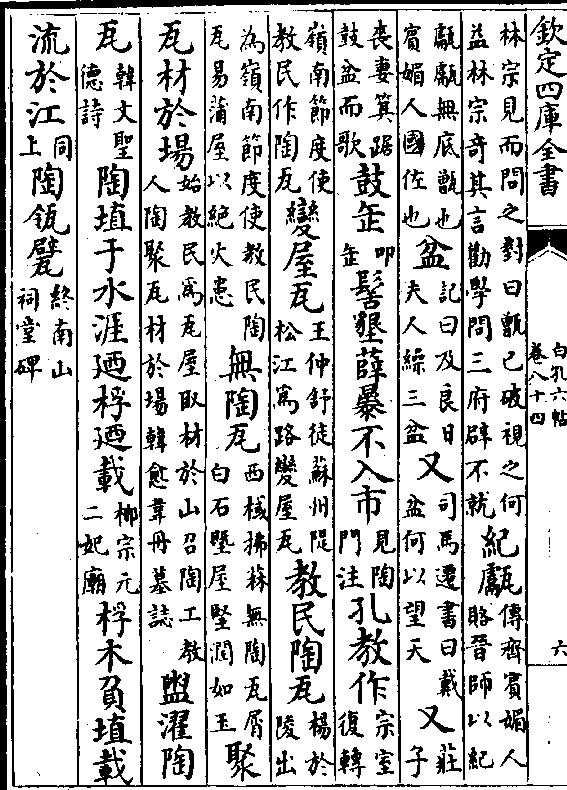 欽定四庫全書
白孔六帖
卷八十四
六
林宗見而問之對曰甑已破視之何
益林宗奇其言勸學問三府辟不就
紀甗
傳齊賓媚人
賂晉師以紀
甗甗無底甑也
賓媚人國佐也
盆
記曰及良日
夫人繰三盆
又
司馬遷書曰戴
盆何以望天
又
莊
子
喪妻箕踞
鼓盆而歌
鼓缶
叩
缶
髻墾薜暴不入市
見陶
門注
孔教作
宗室
復轉
嶺南節度使
教民作陶瓦
變屋瓦
王仲舒徙蘇州隄
松江爲路變屋瓦
教民陶瓦
楊於
陵出
為嶺南節度使教民陶
瓦易蒲屋以絶火患
無陶瓦
西棫拂菻無陶瓦屑
白石塈屋堅潤如玉
聚
瓦材於場
始教民爲瓦屋取材於山召陶工教
人陶聚瓦材於場韓愈韋丹墓誌
盥濯陶
瓦
韓文聖
德詩
陶埴于水涯廼桴廼載
柳宗元
二妃廟
桴木負埴載
流於江
同
上
陶瓴甓
終南山
祠堂碑